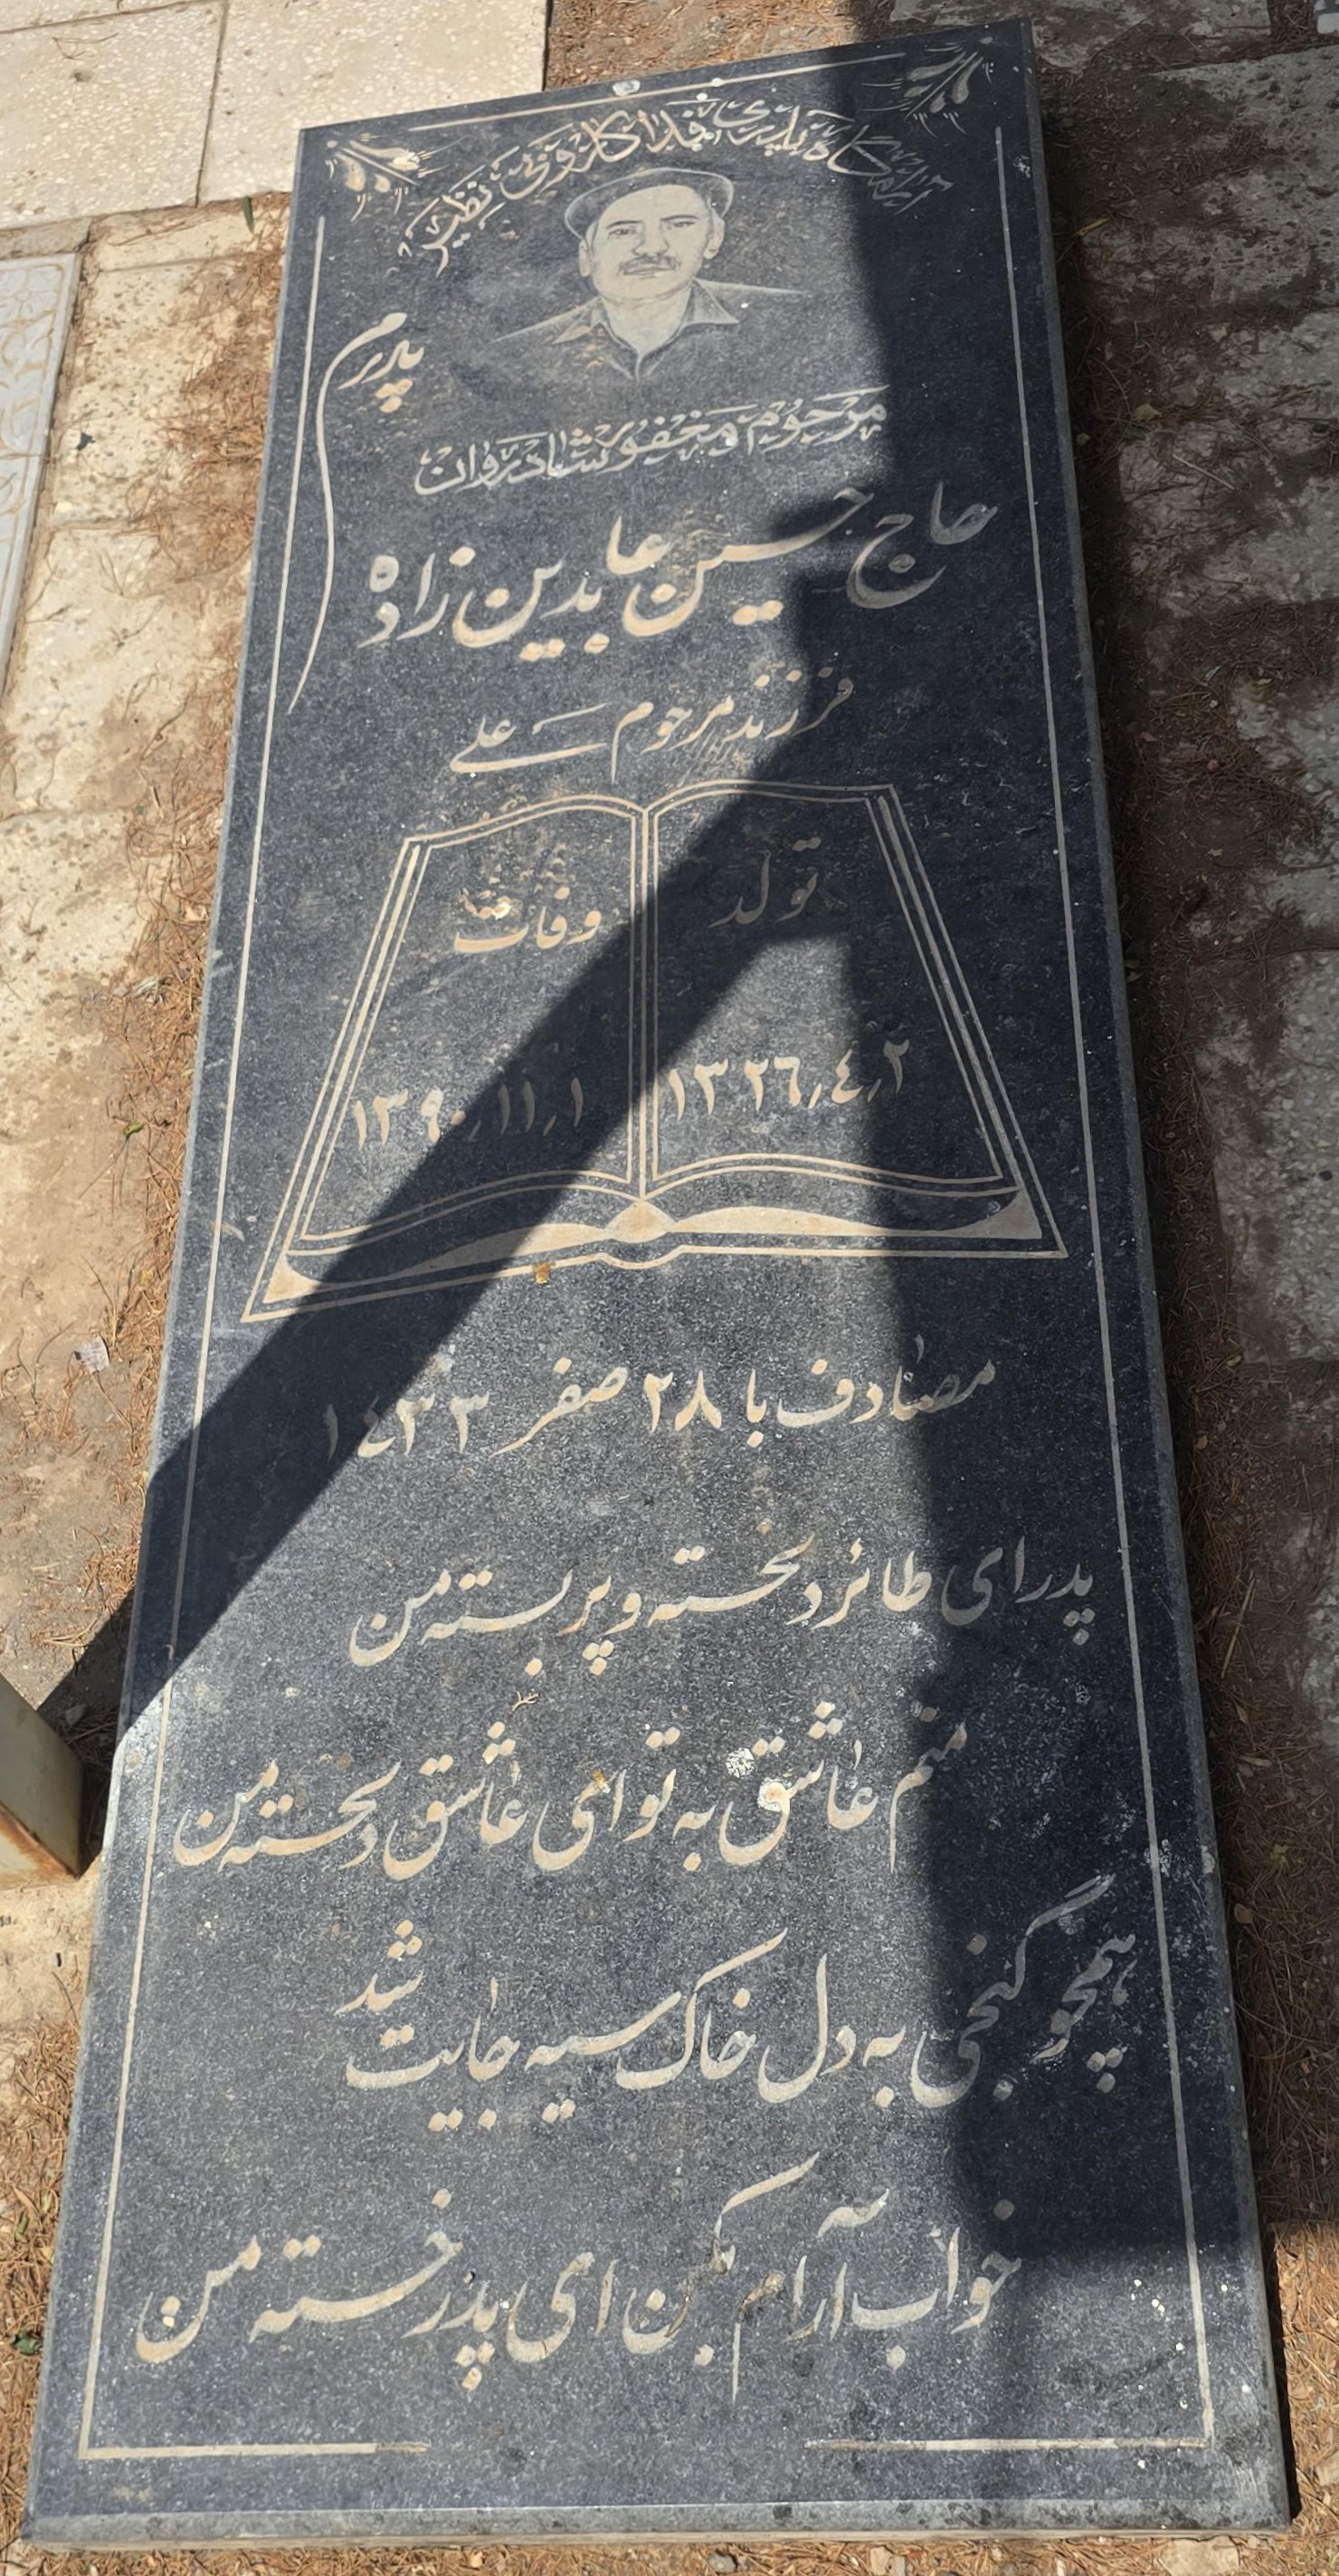 آرامگاه پدری فداکار و بی نظیر
پدرم
مرحوم مغفور شادروان
حاج حسین عابدین زاده
فرزند مرحوم علی
تولد
۱۳۲۶٫٤٫۲
وفات
۱۳۹۰٫۱۱٫۱
مصادف با ۲۸ صفر ۱٤۳۳
پدر ای طائر دلخسته و پر بسته من
منم عاشق به تو ای عاشق دلخسته من
همچو گنجی به دل خاک سیه جایت شد
خواب آرام بکن ای پدر خسته من